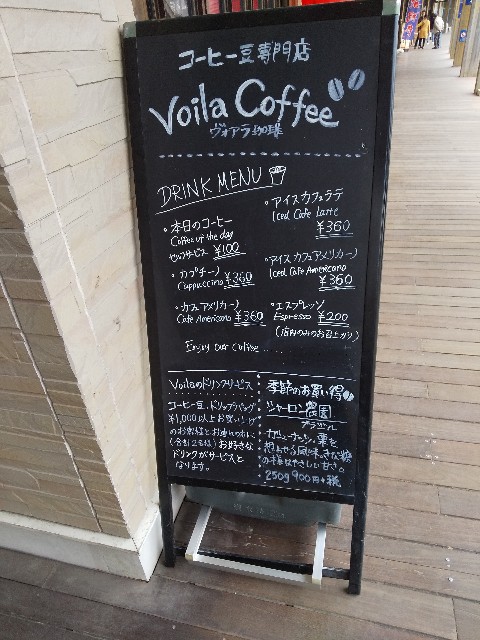 コーヒー豆専門店
Voila Coffee
ヴォアラ珈琲
DRINK MENU
・本日のコーヒー
Coffee of the day
セルフサービス ¥100
・カプチーノ
Cappuccino ¥360
・カフェアメリカーノ
Cafe Americano ¥360
Enjoy our coffee...
・アイスカフェラテ
Iced Cafe Latte
¥360
・アイスカフェアメリカーノ
Iced Cafe Americano
¥360
・エスプレッソ
Espresso ¥200
(店内のみのお召上ガリ)
Voilaのドリンクサービス
コーヒー豆、ドリップバッグ
¥1,000以上お買い上げ
のお客様とお連れの方に
(合計2名様)お好きな
ドリンクがサービスと
なります。
季節のお買い得
シャーロン農園
ブラジル
カシューナッツ、栗を
の様なやさしい甘さ。
250g 900円+税